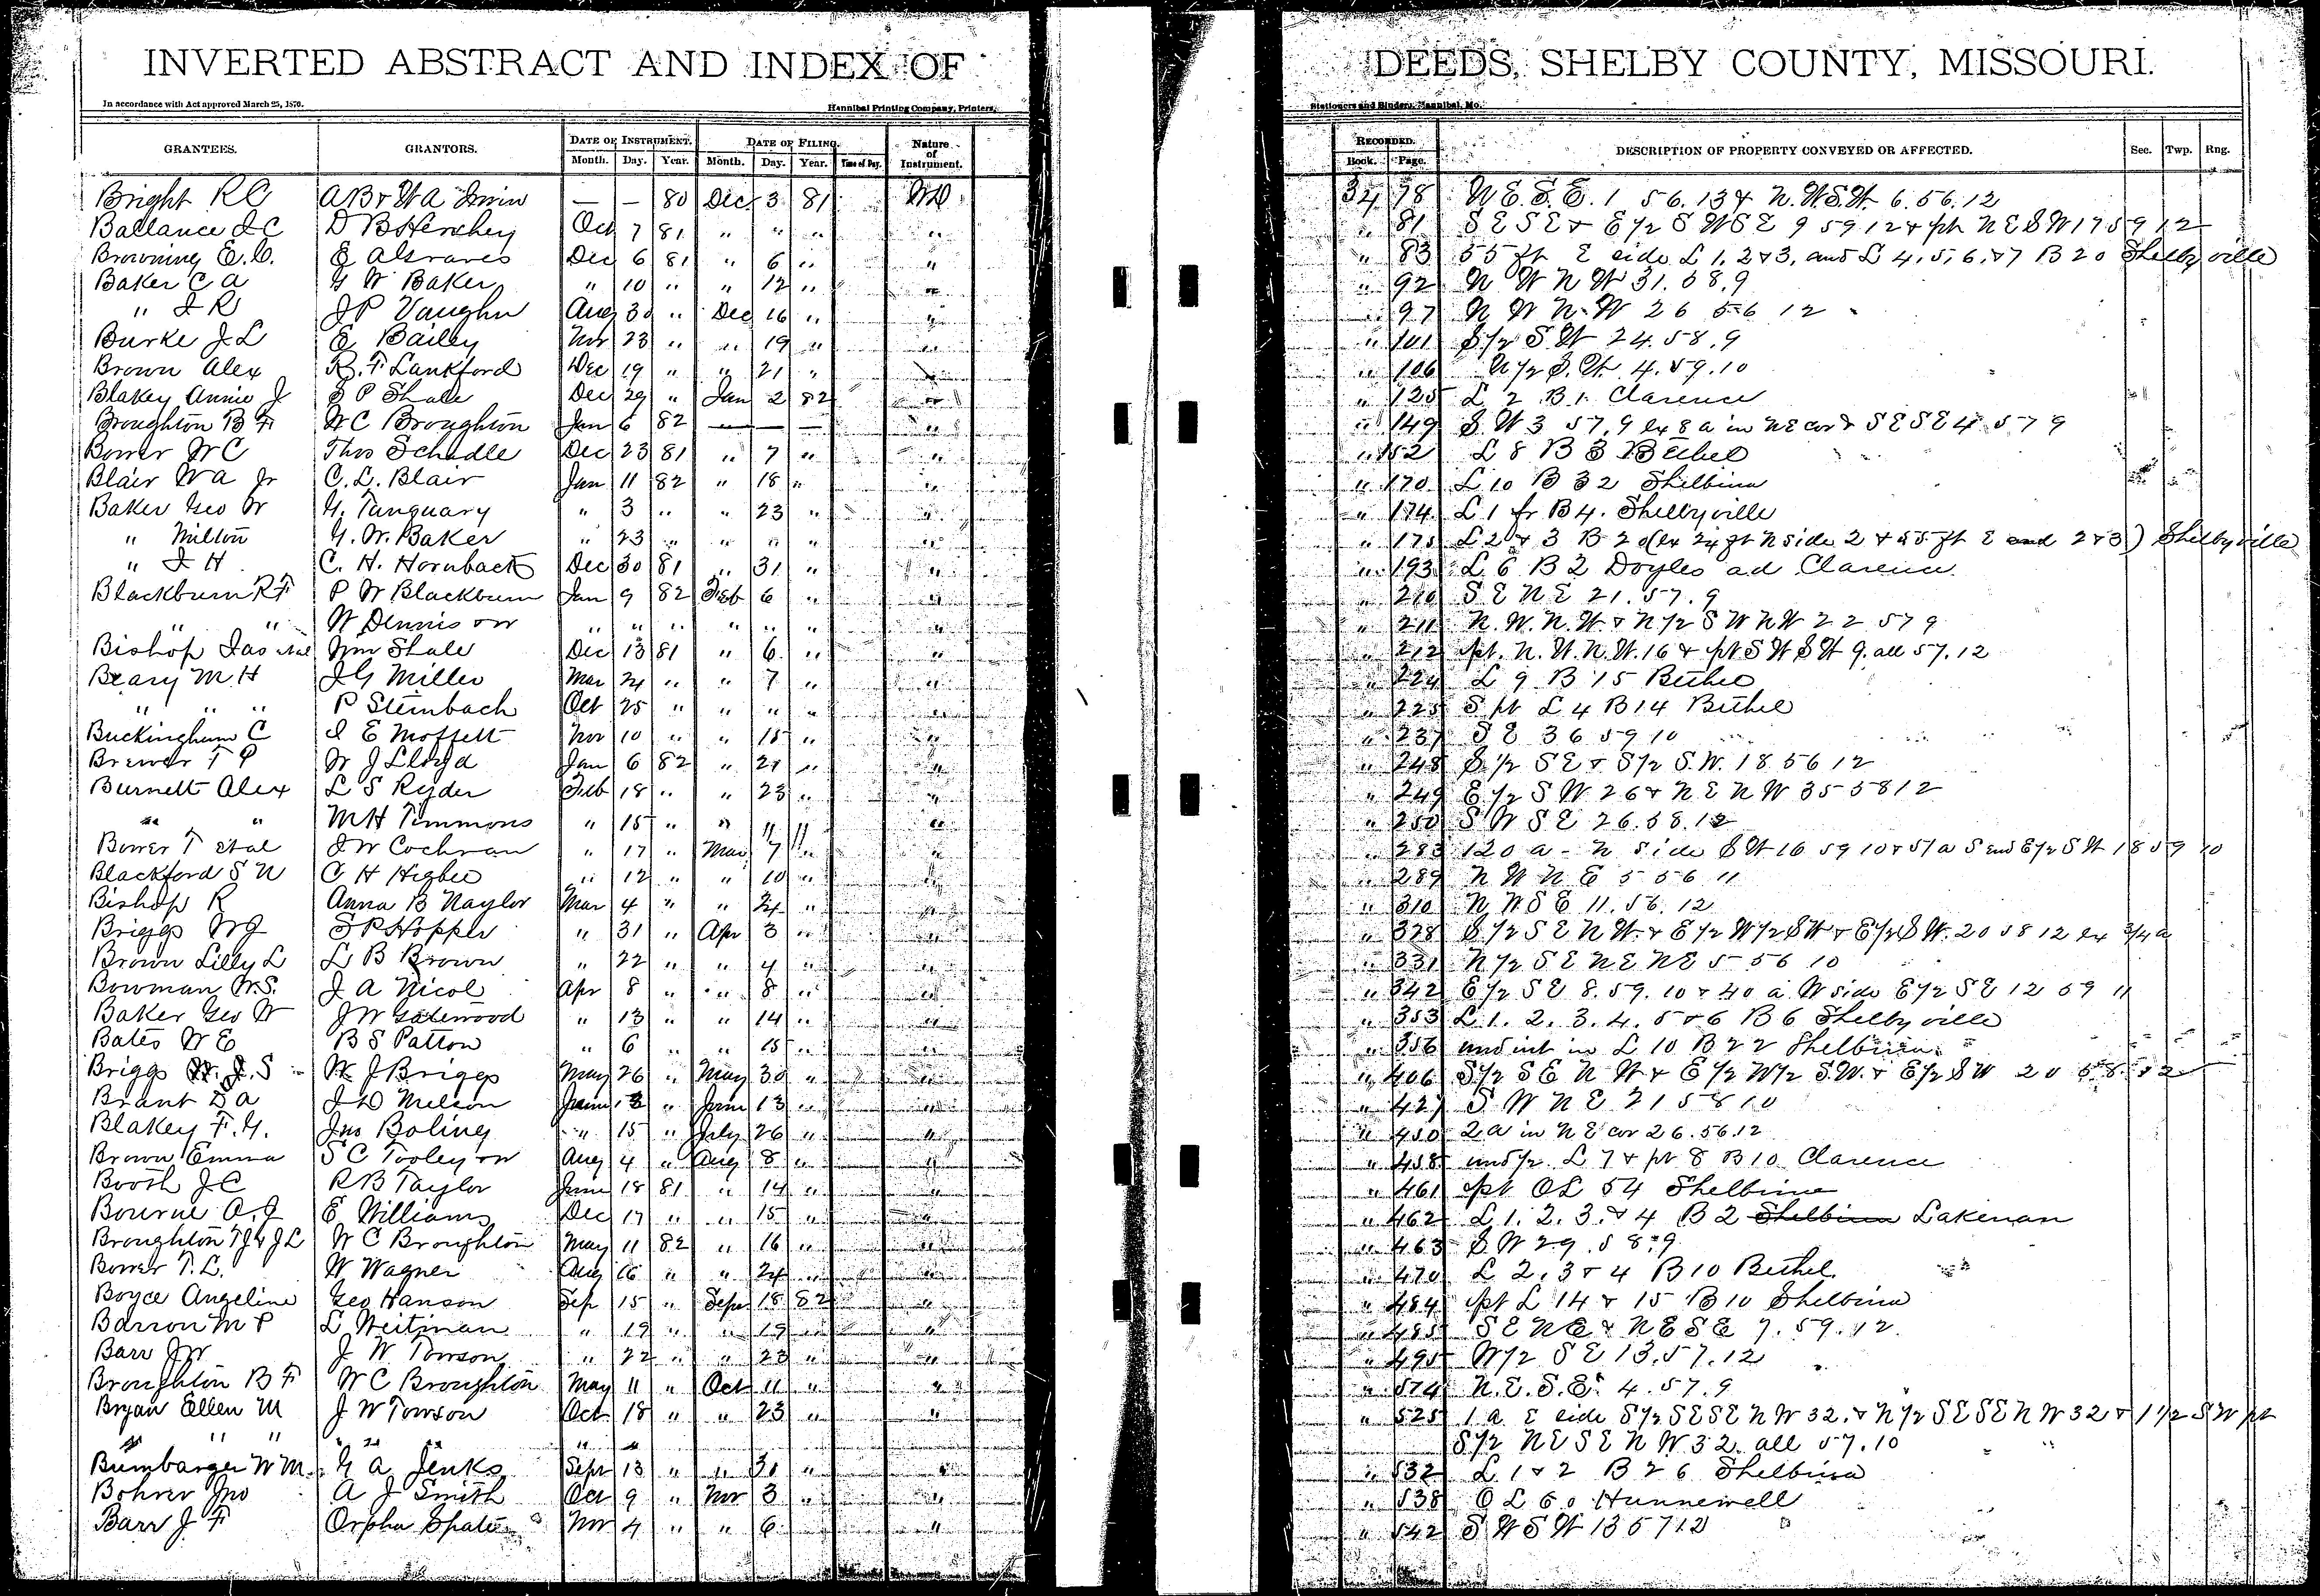 INVERTED ABSTRACT AND INDEX OF DEEDS, SHELBY COUNTY, MISSOURI.
In accordance with Act approved March 25, 1870. Hannibal Printing Company, Printers, Stationers and Binders, Hannibal, Mo.
GRANTEES. GRANTORS. DATE OF INSTRUMENT. DATE OF FILING. Nature of Instrument. RECORDED. DESCRIPTION OF PROPERTY CONVEYED OR AFFECTED. Sec. Twp. Rng.
Month. Day. Year. Month. Day. Year. Time of Day. Book. Page.
Bright R C A B & W A Irwin — — 80 Dec 3 81 WD 34 78 N E. S. E. 1 56. 13 & N. W. S. W. 6. 56. 12
Ballance J C D B Hershey Oct 7 81 " " " " " 81 S E S E & E 1/2 S W S E 9 59 12 & pt N E S W 17 59 12
Browning E. C. E A Graves Dec 6 81 " 6 " " " 83 55 ft E side L 1, 2 & 3, and L 4, 5, 6, & 7 B 20 Shelbyville
Baker C A G W Baker " 10 " " 12 " " " 92 N W N W 31. 58. 9
" J R J P Vaughn Aug 30 " Dec 16 " " " 97 N W N. W 26 56 12
Burke J L E Bailey Nov 23 " " 19 " " " 101 S 1/2 S W 24. 58. 9
Brown Alex R. F Lankford Dec 19 " " 21 " " " 106 N 1/2 S. W. 4. 59. 10
Blakey Annie J S P Shale Dec 29 " Jan 2 82 " " 125 L 2 B 1 Clarence
Broughton B F W C Broughton Jan 6 82 — — — " " 149 S W 3 57. 9 ex 8 a in NE cor & S E S E 4 57 9
Bower W C Thos Schedle Dec 23 81 " 7 " " " 152 L 8 B 3 Bethel
Blair W A Jr C. L. Blair Jan 11 82 " 18 " " " 170 L 10 B 32 Shelbina
Baker Geo W G. Tanquary " 3 " " 23 " " " 174 L 1 fr B 4. Shelbyville
" Milton G. W. Baker " 23 " " " " " " 175 L 2 & 3 B 2 (ex 24 ft N side 2 & 55 ft E end 2 & 3) Shelbyville
" J H C. H. Hornback Dec 30 81 " 31 " " " 193 L 6 B 2 Doyles ad Clarence
Blackburn R F P W Blackburn Jan 9 82 Feb 6 " " " 210 S E N E 21. 57. 9
" " W Dennis & w " " " " " " " " 211 N. W. N. W. & N 1/2 S W N W 22 57 9
Bishop Jas et al Wm Shale Dec 13 81 " 6 " " " 212 pt. N. W. N. W. 16 & pt S W S W 9. all 57. 12
Beary M H J G Miller Mar 24 " " 7 " " " 224 L 9 B 15 Bethel
" " " P Steinbach Oct 25 " " " " " " 225 S pt L 4 B 14 Bethel
Buckingham C I E Moffett Nov 10 " " 15 " " " 237 S E 36 59 10
Brewer T P W J Lloyd Jan 6 82 " 21 " " " 248 S 1/2 S E & S 1/2 S. W. 18 56 12
Burnett Alex L S Ryder Feb 18 " " 23 " " " 249 E 1/2 S W 26 & N E N W 35 58 12
" " M H Timmons " 15 " " " " " " 250 S W S E 26. 58. 12
Bower T et al J W Cochran " 17 " Mar 7 " " " 283 120 a - N side S W 16 59 10 & 51 a S end E 1/2 S W 18 59 10
Blackford S N C H Higbee " 12 " " 10 " " " 289 N W N E 5 56 11
Bishop R Anna B Naylor Mar 4 " " 24 " " " 310 N W S E 11. 56. 12
Briggs W J S P Hopper " 31 " Apr 3 " " " 328 S 1/2 S E N W. & E 1/2 W 1/2 S W & E 1/2 S W. 20 58 12 ex 3/4 a
Brown Lilly L L B Brown " 22 " " 4 " " " 331 N 1/2 S E N E N E 5 56 10
Bowman W. S. J A Nicol Apr 8 " " 8 " " " 342 E 1/2 S E 8. 59. 10 & 40 a W side E 1/2 S E 12 59 11
Baker Geo W J W Gatewood " 13 " " 14 " " " 353 L 1. 2. 3. 4. 5 & 6 B 6 Shelbyville
Bates W E B S Patton " 6 " " 15 " " " 356 und int in L 10 B 22 Shelbina
Briggs J. S W J Briggs May 26 " May 30 " " " 406 S 1/2 S E N W & E 1/2 W 1/2 S. W. & E 1/2 S W 20 58 12
Brant D A J D Melson June 13 " June 13 " " " 427 S W N E 21 58 10
Blakey F. G. Jno Boling " 15 " July 26 " " " 450 2 a in N E cor 26. 56. 12
Brown Emma S C Tooley & w Aug 4 " Aug 8 " " " 458 und 1/2 L 7 & pt 8 B 10 Clarence
Booth J C R B Taylor June 18 81 " 14 " " " 461 pt O L 54 Shelbina
Bourne A. J E Williams Dec 17 " " 15 " " " 462 L 1. 2. 3. & 4 B 2 Shelbina Lakenan
Broughton T J & J L W C Broughton May 11 82 " 16 " " " 463 S W 29. 58. 9
Bower T. L. W Wagner Aug 16 " " 24 " " " 470 L 2. 3 & 4 B 10 Bethel
Boyce Angeline Geo Hanson Sep 15 " Sept 18 82 " " 484 pt L 14 & 15 B 10 Shelbina
Barron M P L Weitman " 19 " " 19 " " " 485 S E N E & N E S E 7. 59. 12
Barr J W J W Towson " 22 " " 23 " " " 495 W 1/2 S E 13. 57. 12
Broughton B F W C Broughton May 11 " Oct 11 " " " 514 N. E. S. E. 4. 57. 9
Bryan Ellen M J W Towson Oct 18 " " 23 " " " 525 1 a E side S 1/2 S E S E N W 32. & N 1/2 S E S E N W 32 & 1 1/2 S W pt
" " " " " " " S 1/2 N E S E N W 32. all 57. 10
Bumbarger W M G A Jenks Sept 13 " " 31 " " " 532 L 1 & 2 B 26 Shelbina
Bohrer Jno A J Smith Oct 9 " Nov 3 " " " 538 O L 60 Hunnewell
Barr J F Orpha Spate Nov 4 " " 6 " " 542 S W S W 13 57 12